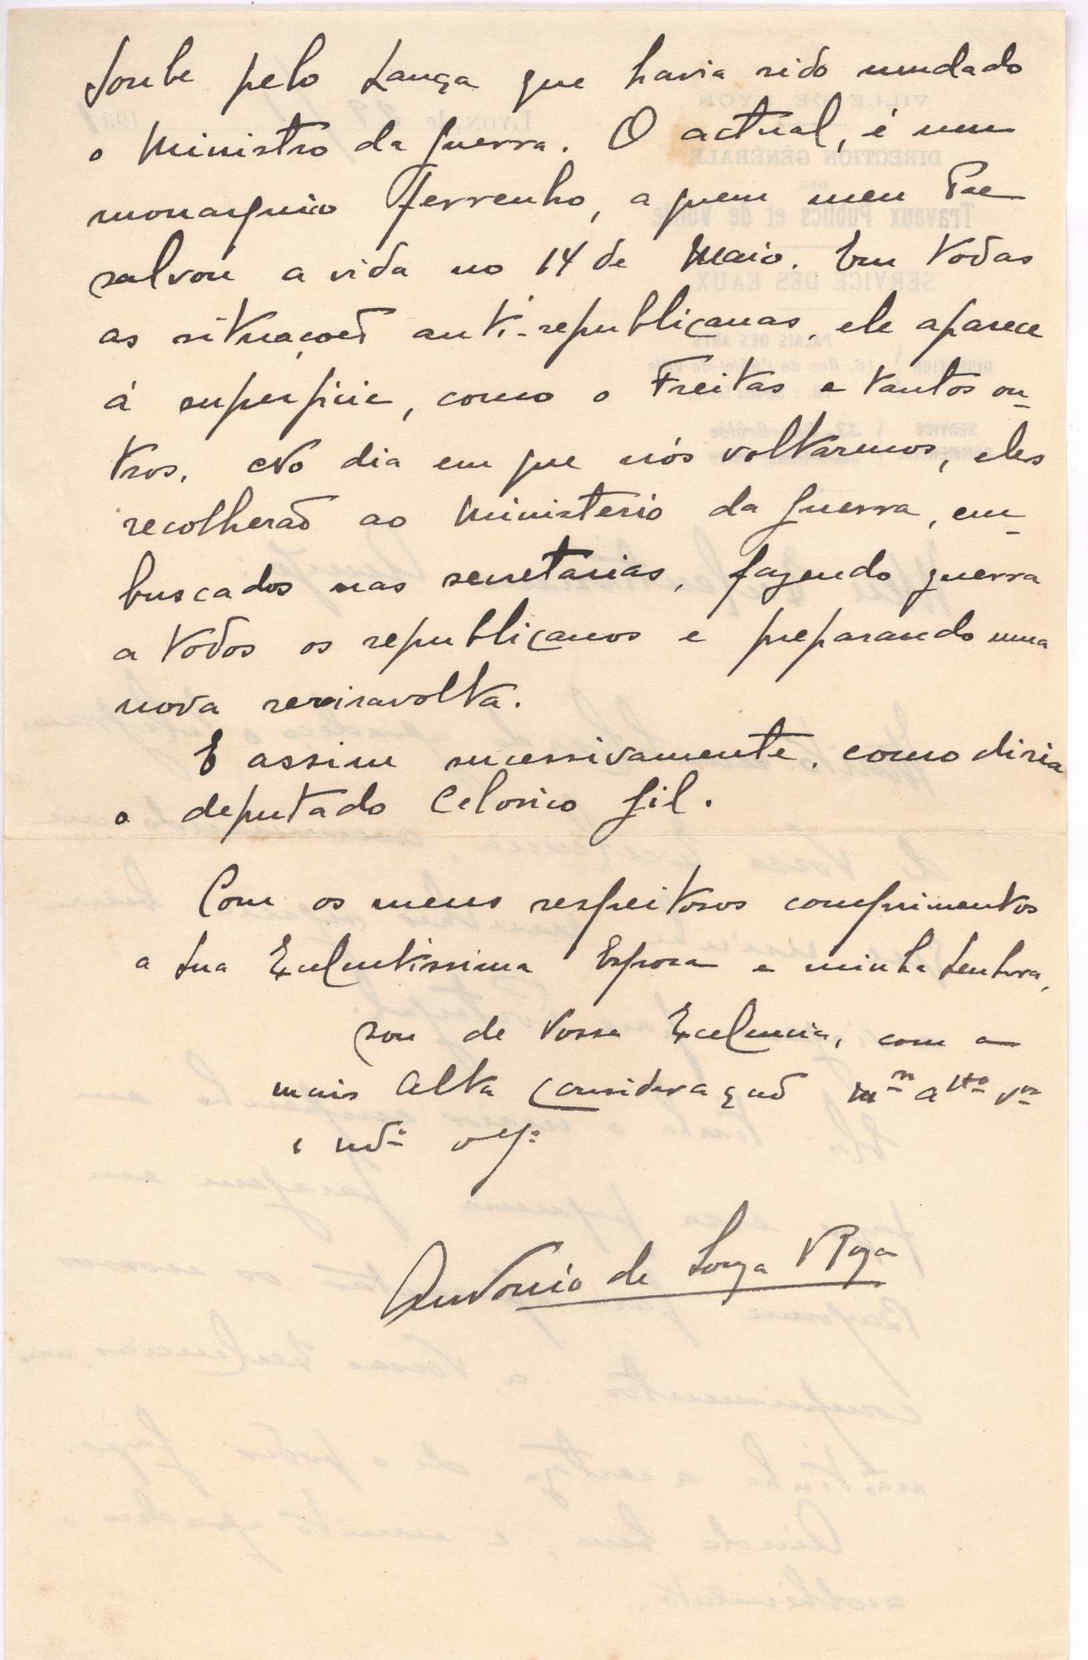 Soube pelo Lança que havia sido mudado
o Ministro da Guerra. O actual, é um
monarquico ferrenho, a quem meu Pae
salvou a vida no 14 de Maio. Em todas
as situações anti-republicanas, ele aparece
á superficie, como o Freitas e tantos ou-
tros. No dia em que nós voltarmos, eles
recolherão ao Ministerio da Guerra, em-
buscados nas secretarias, fazendo guerra
a todos os republicanos e preparando uma
nova reviravolta.
E assim sucessivamente, como diria
o deputado Celorico Gil.
Com os meus respeitosos comprimentos
a Sua Excelentissima Esposa e minha Senhora,
sou de Vossa Excelencia, com a
mais alta consideração m.to a.tto v.or
e
Antonio de Souza
VILLE DE LYON
LYON, le
DIRECTION GÉNÉRALE
Travaux Publics et de
SERVICE DES EAUX
PALAIS DES ARTS